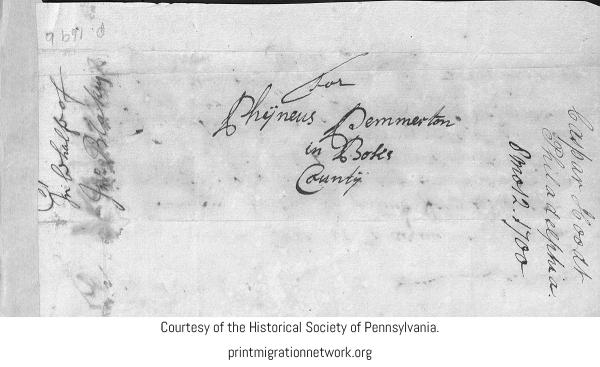 For
Phijneus Pemmerton
in Boks
County
Caspar Hoodt
Philadelphia.
8 mo 12. 1700
in Behalf of
Courtesy of the Historical Society of Pennsylvania.
printmigrationnetwork.org